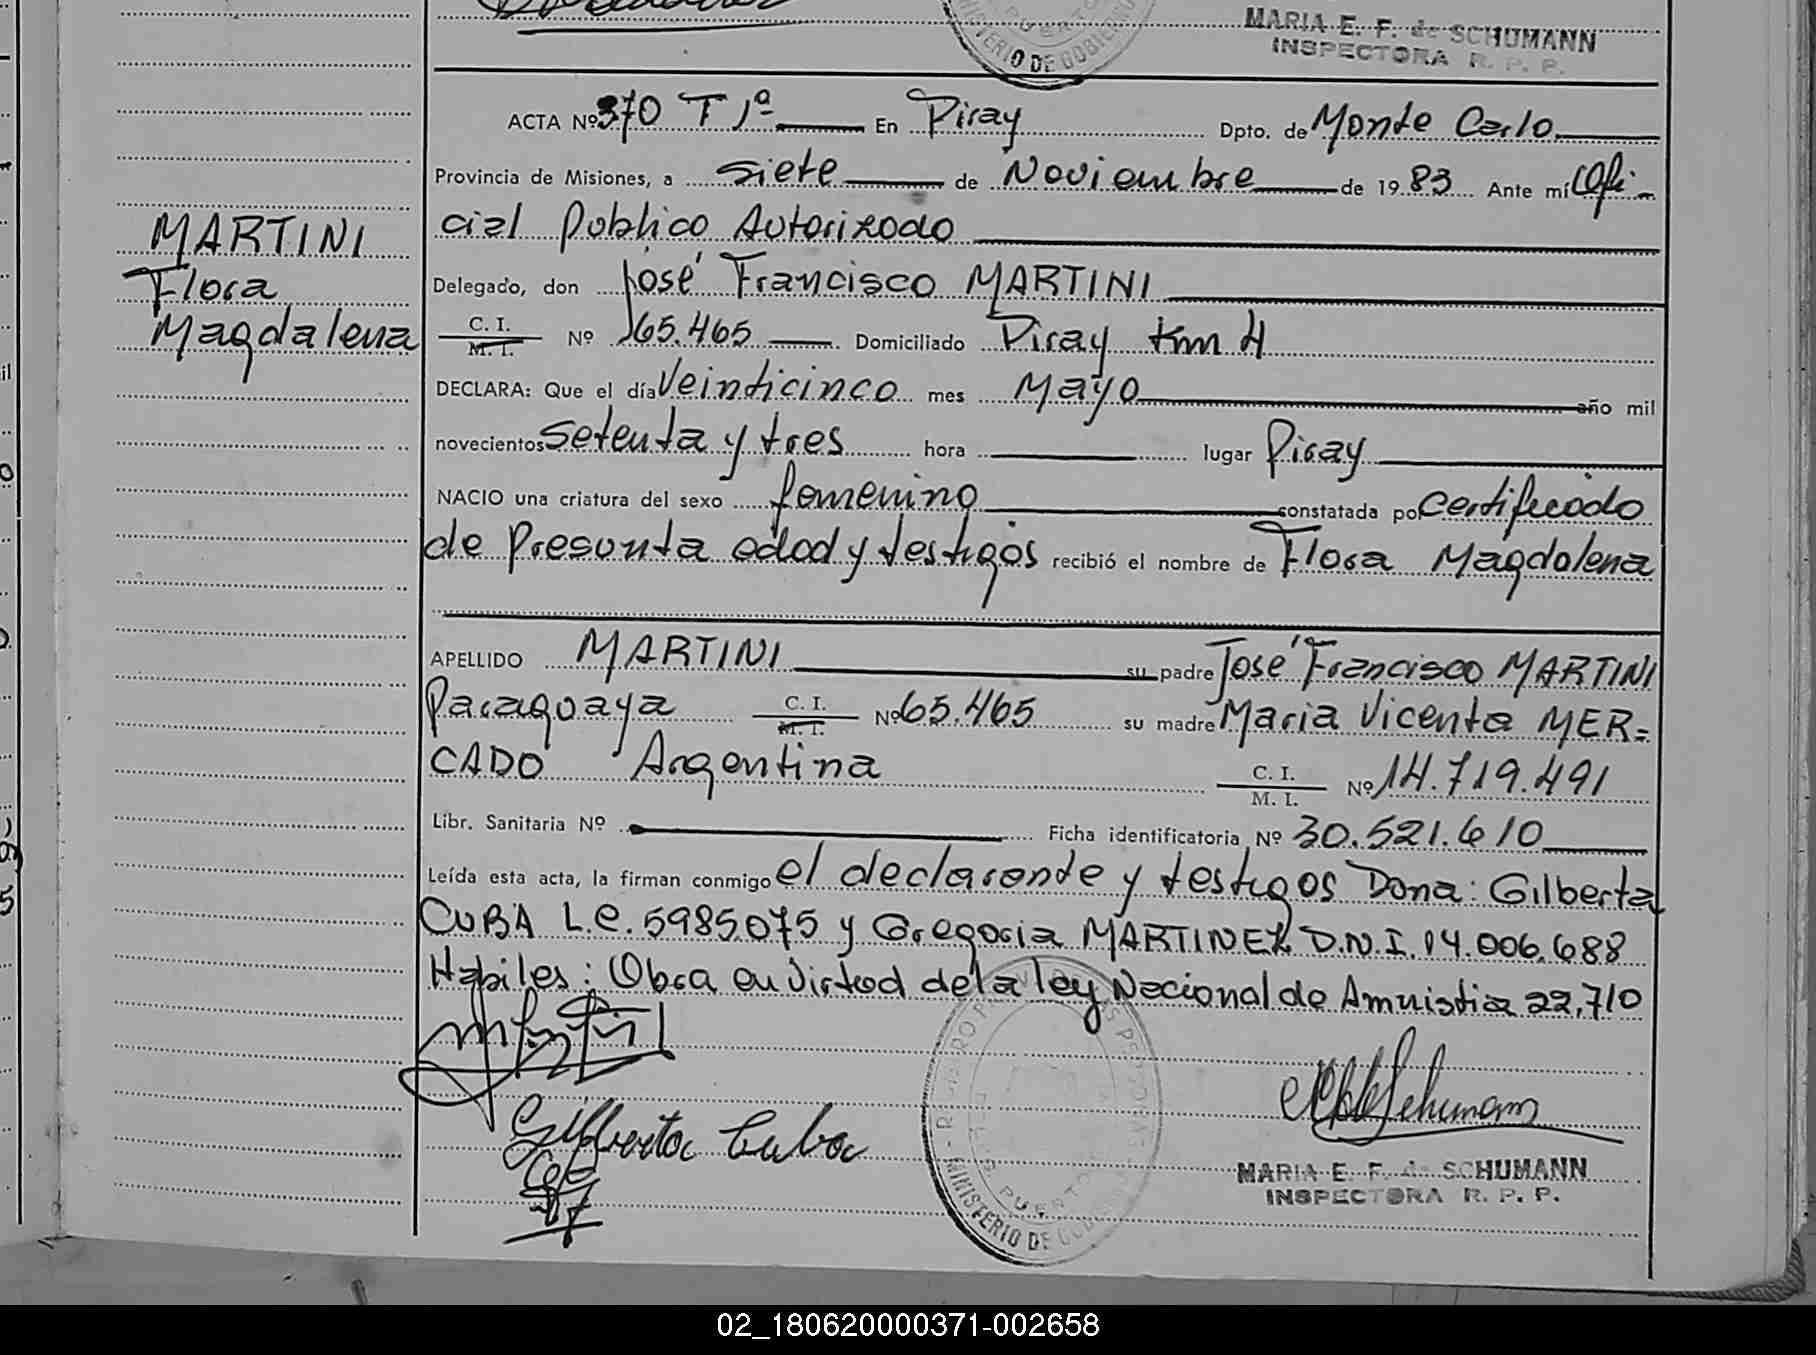 MARIA E. F. de SCHUMANN
INSPECTORA R. P. P.
ACTA Nº 370 T 1º En Piray Dpto. de Monte Carlo
Provincia de Misiones, a siete de Noviembre de 19 83 Ante mí Ofi-
cial Publico Autorizado
Delegado, don José Francisco MARTINI
C. I. M. I. Nº 165.465 Domiciliado Piray Km 4
DECLARA: Que el día Veinticinco mes Mayo año mil
novecientos Setenta y tres hora lugar Piray
NACIO una criatura del sexo femenino constatada por Certificado
de Presunta edad y testigos recibió el nombre de Flora Magdalena
APELLIDO MARTINI su padre José Francisco MARTINI
Paraguaya C. I. M. I. Nº 165.465 su madre Maria Vicenta MER=
CADO Argentina C. I. M. I. Nº 14.719.491
Libr. Sanitaria Nº Ficha identificatoria Nº 30.521.610
Leída esta acta, la firman conmigo el declarante y testigos Dona: Gilberta
CUBA L.C. 5985.075 y Gregoria MARTINEZ D.N.I. 14.006.688
Habiles: Obra en virtud de la ley Nacional de Amnistia 22.710
Gilberta Cuba
MARIA E. F. de SCHUMANN
INSPECTORA R. P. P.
MINISTERIO DE GOBIERNO
MARTINI
Flora
Magdalena
02_180620000371-002658